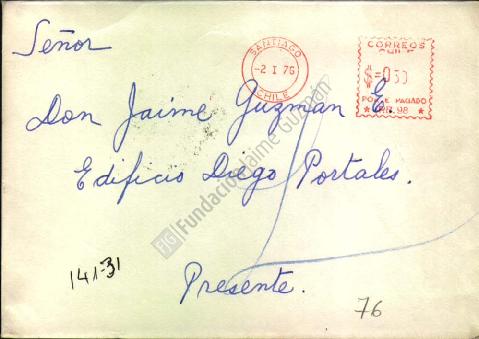 Señor
SANTIAGO
-2 I 76
CHILE
CORREOS
CHILE
PORTE PAGADO
Don Jaime Guzman E.
Edificio Diego Portales.
FJG Fundación Jaime Guzmán
141-31
Presente.
76